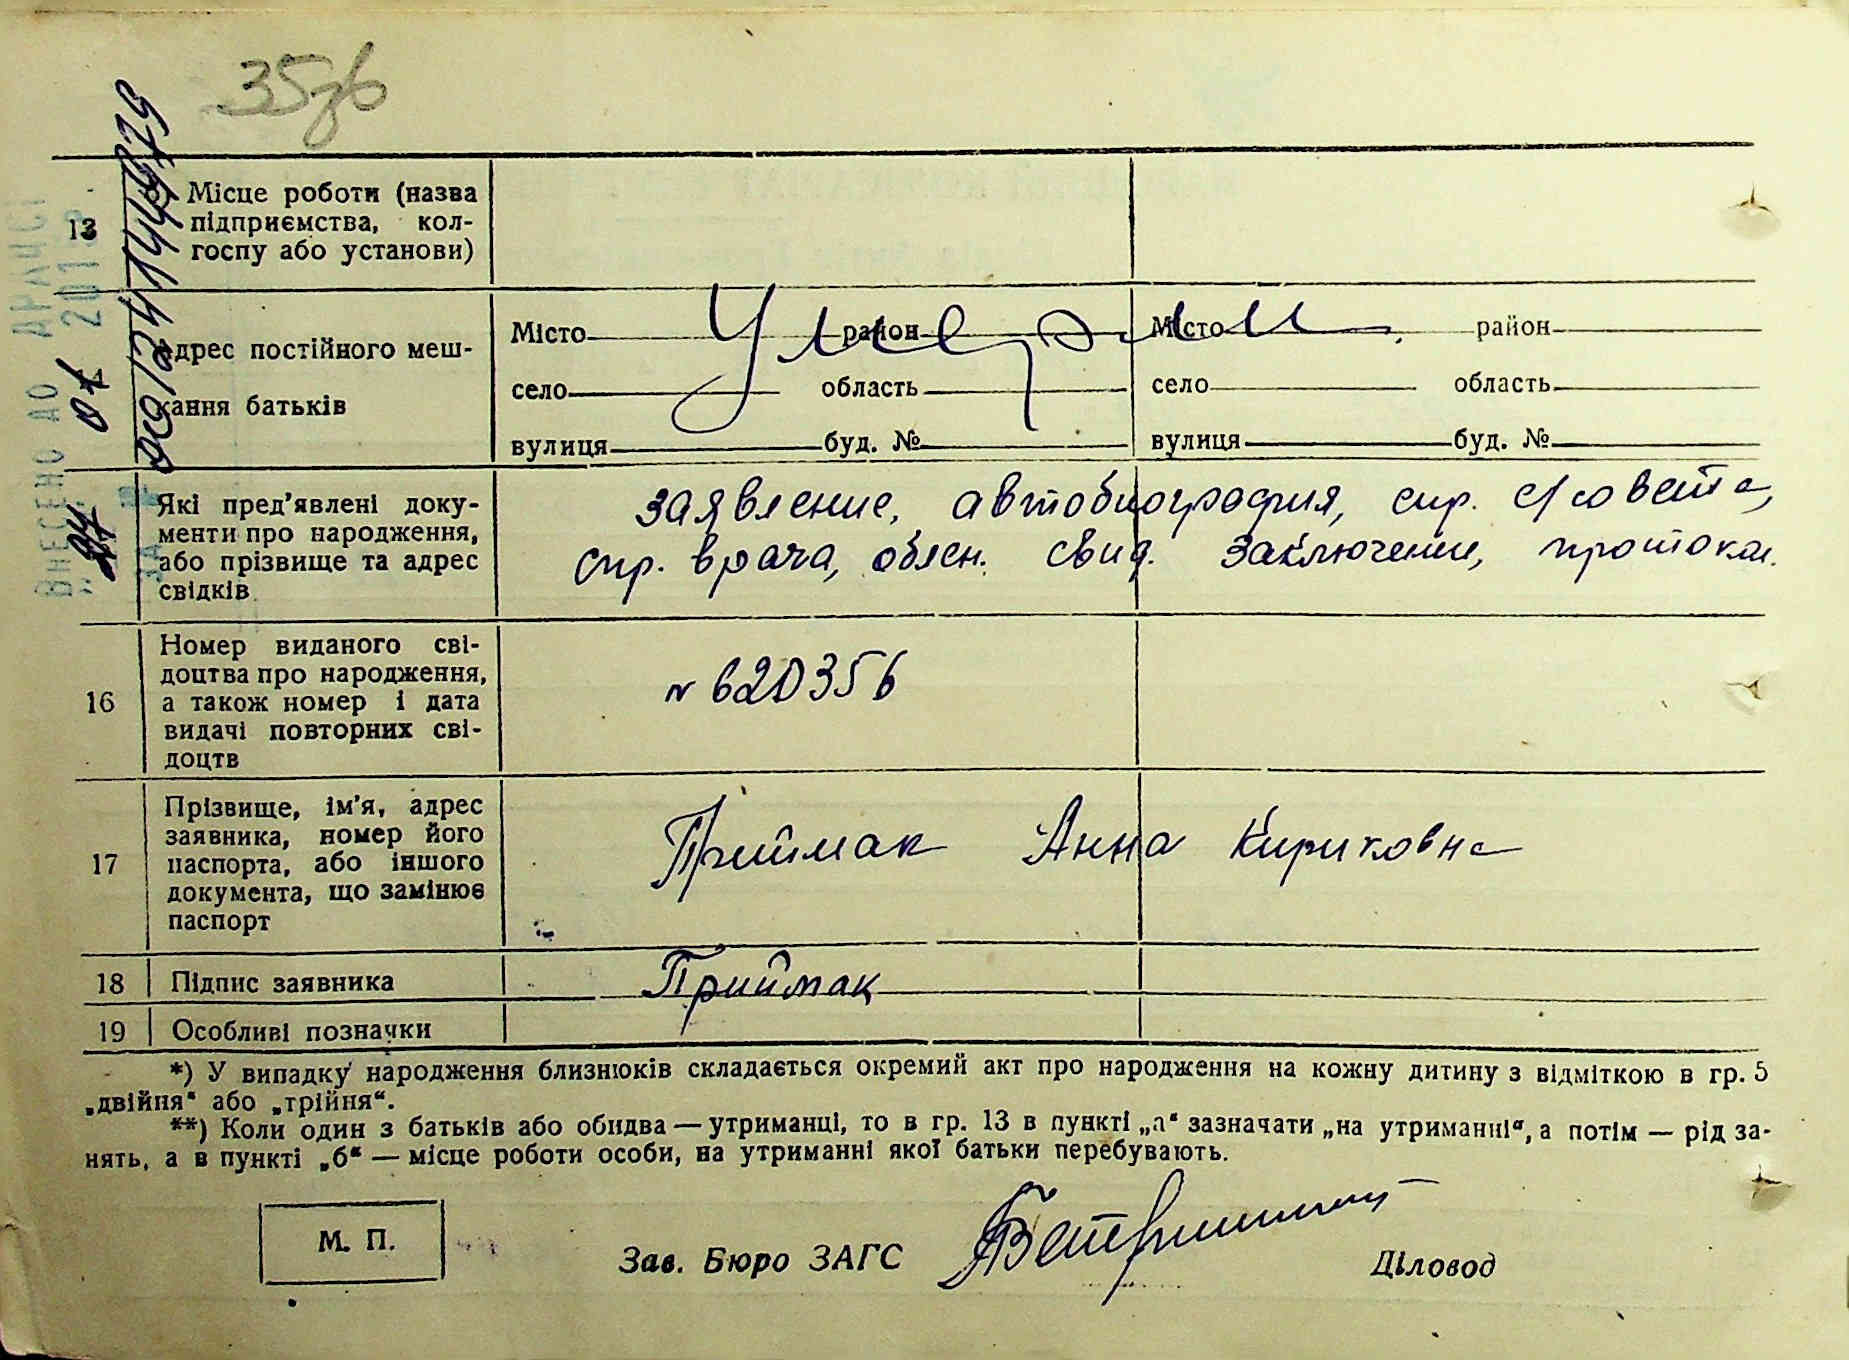 35
13 б) Місце роботи (назва
підприємства, кол-
госпу або установи)
Адрес постійного меш-
кання батьків
Місто район Місто район
село область село область
вулиця буд. № вулиця буд. №
Умерли
Які пред'явлені доку-
менти про народження,
або прізвище та адрес
свідків
заявление, автобиография, спр. с/совета,
спр. врача, об'ясн. свид. заключение, протокол.
16 Номер виданого сві-
доцтва про народження,
а також номер і дата
видачі повторних сві-
доцтв
№ 620356
17 Прізвище, ім'я, адрес
заявника, номер його
паспорта, або іншого
документа, що замінює
паспорт
Приймак Анна Кириковна
18 Підпис заявника Приймак
19 Особливі позначки
*) У випадку народження близнюків складається окремий акт про народження на кожну дитину з відміткою в гр. 5
„двійня“ або „трійня“.
**) Коли один з батьків або обидва — утриманці, то в гр. 13 в пункті „а“ зазначати „на утриманні“, а потім — рід за-
нять, а в пункті „б“ — місце роботи особи, на утриманні якої батьки перебувають.
М. П.
Зав. Бюро ЗАГС Діловод
ВНЕСЕНО ДО ДРАЦСГ